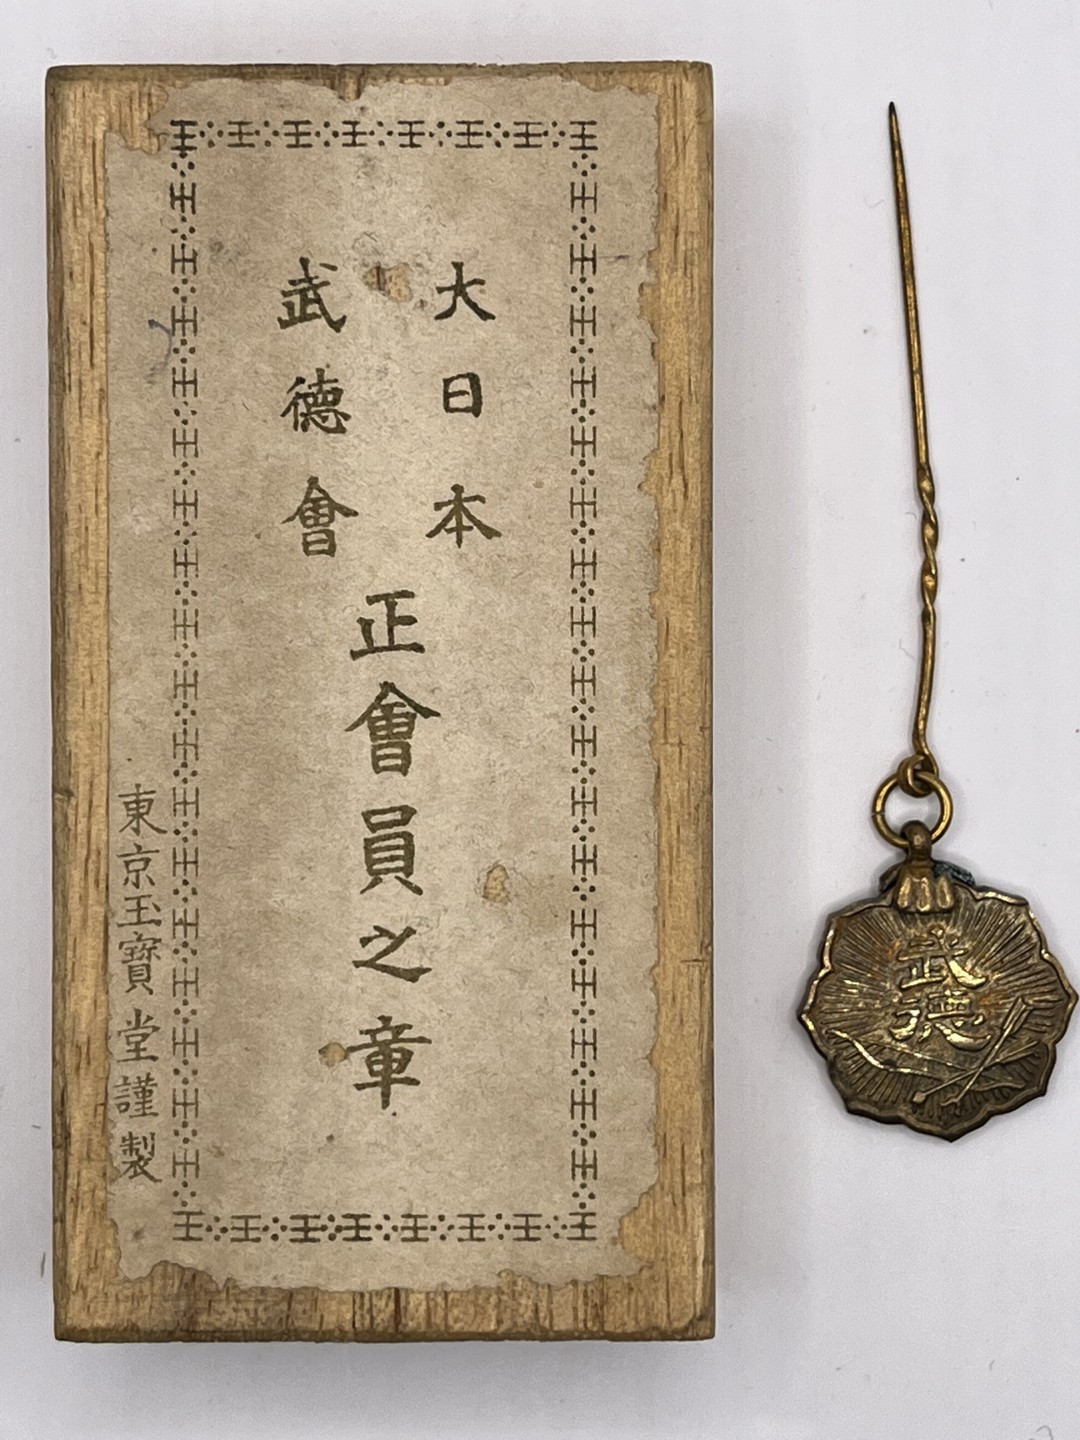 大日本
武德會
正會員之章
東京玉寶堂謹製
武德